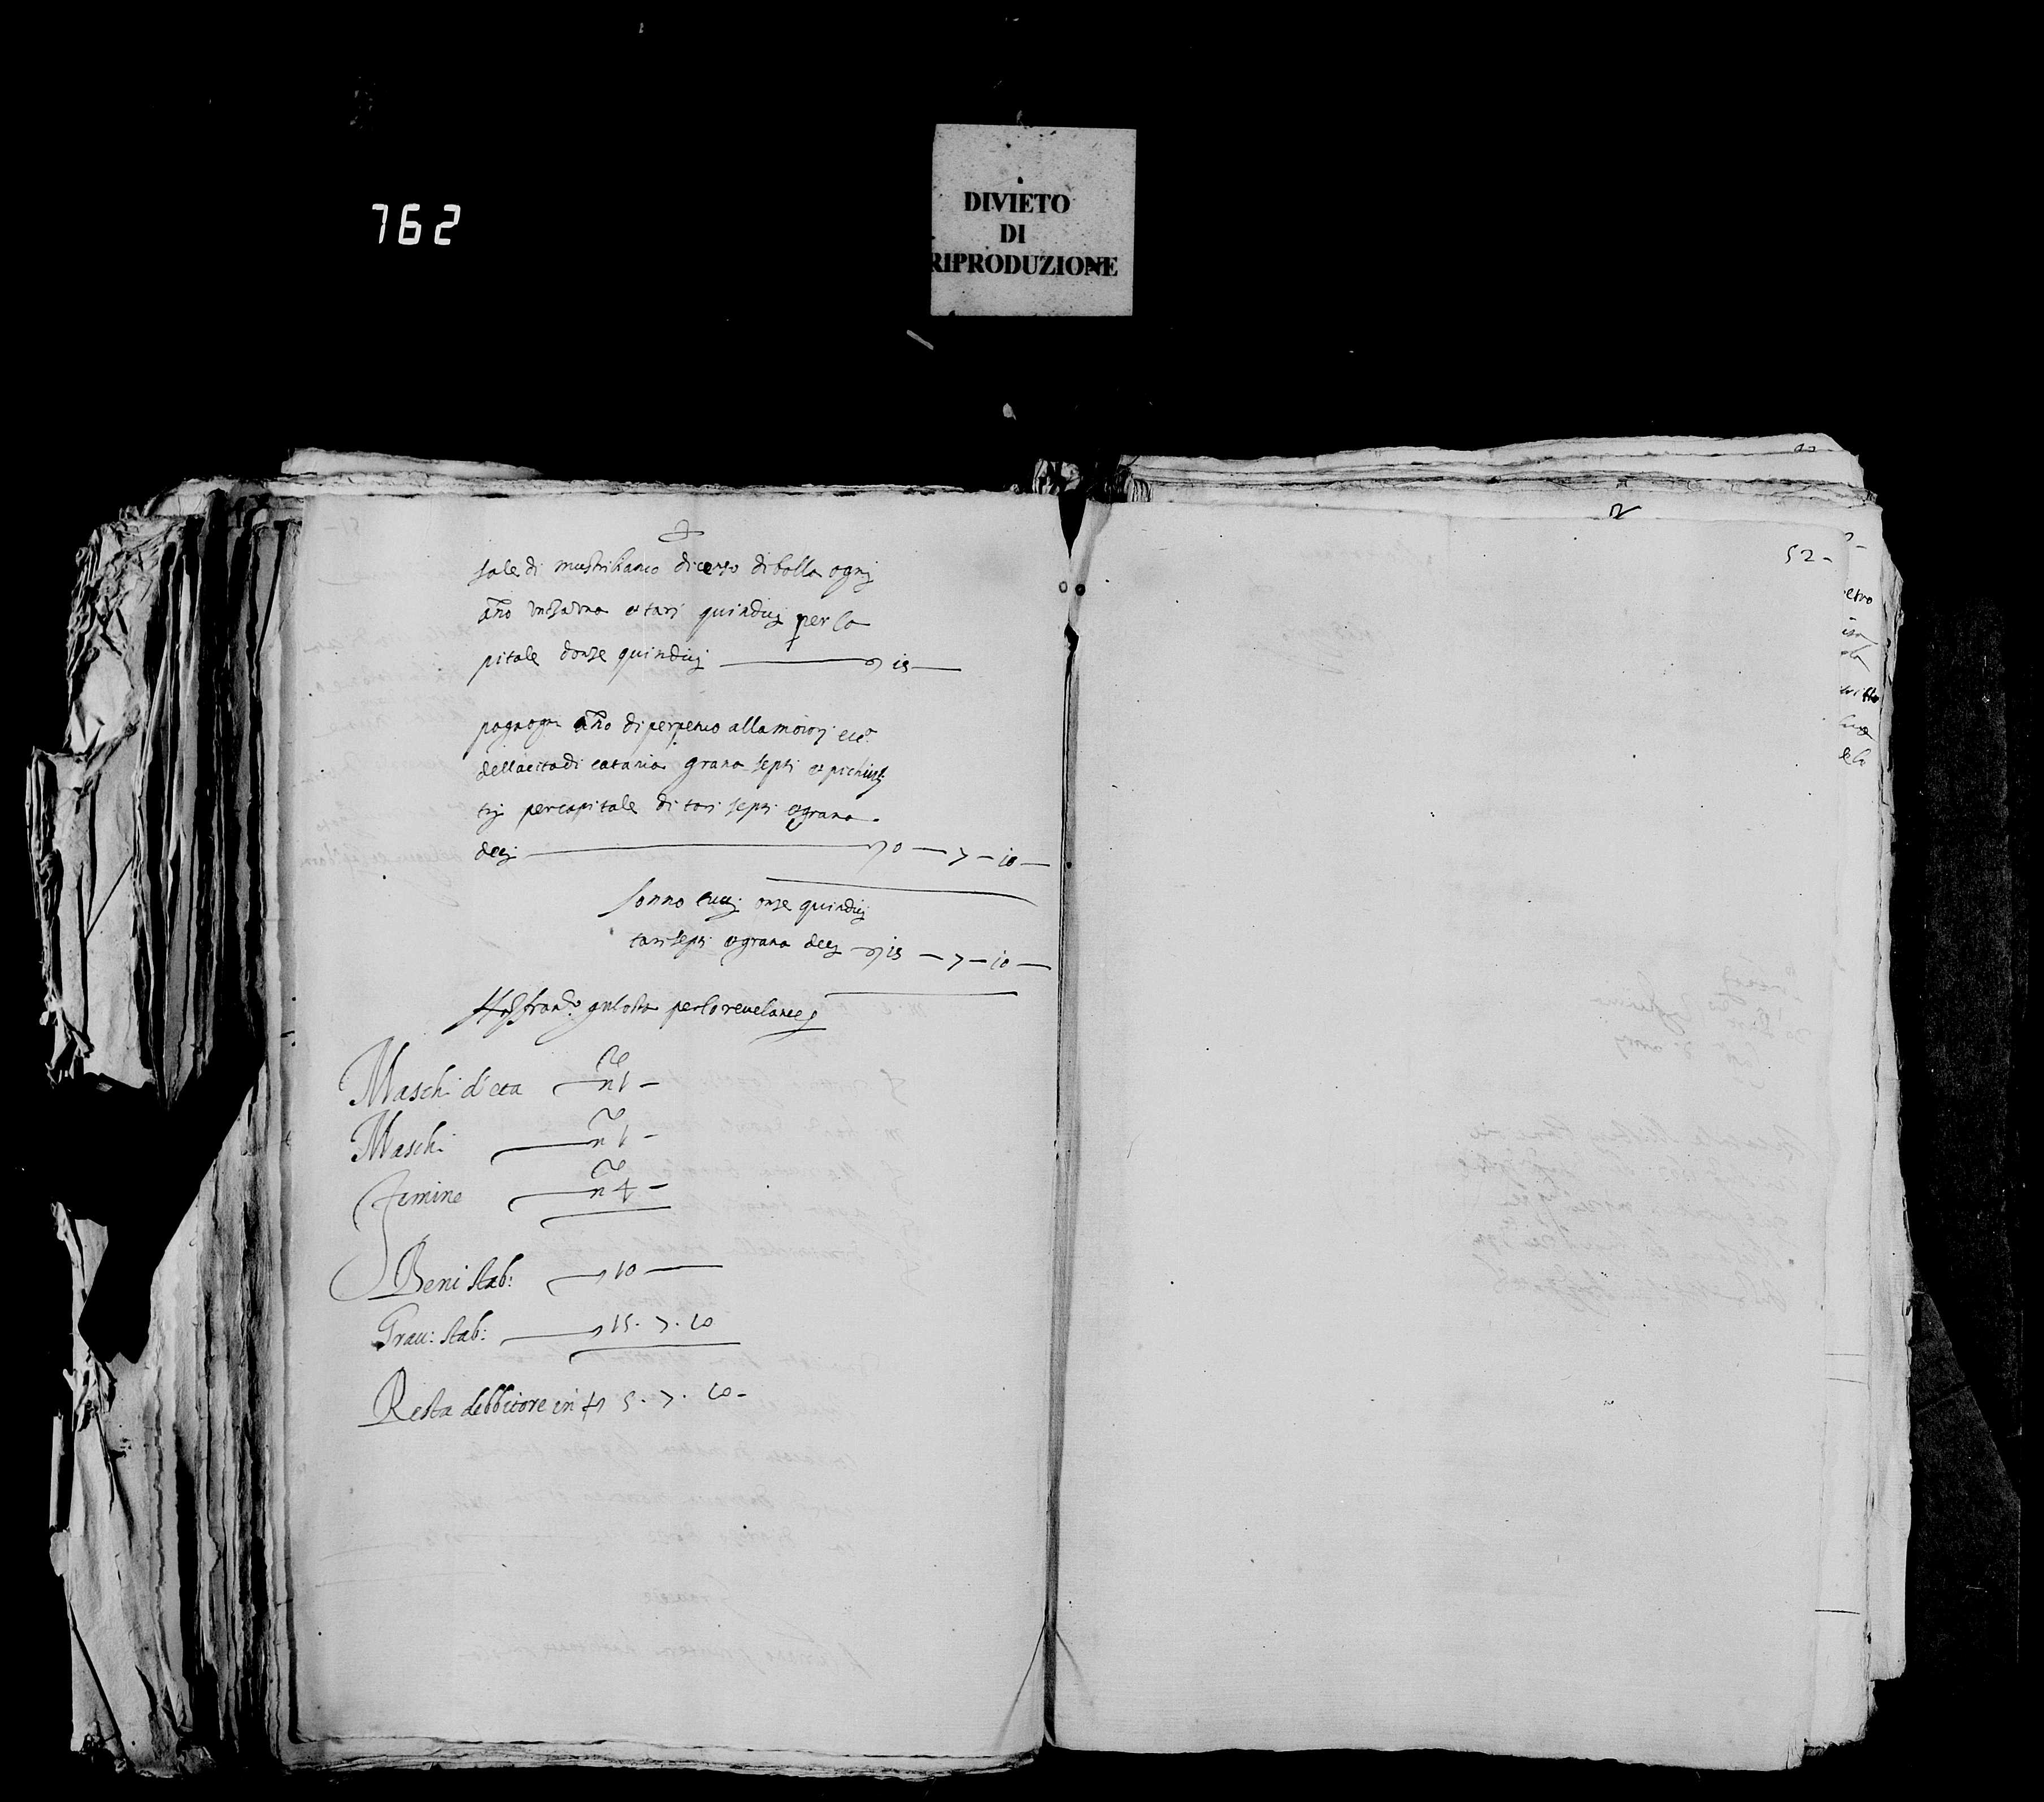 762
DIVIETO
DI
RIPRODUZIONE
sale di mustribianco di censo di bolla ogni
año unza una et tari quindici per ca
pitale d onze quindici 15
paga ogni año di perpetuo alla
della cita di catania grana septi et pichuli
tri per capitale di tari septi et grana
deci 0 — 7 — 10 —
sonno tucti onze quindici
tari septi et grana deci 15 — 7 — 10 —
fran.co gulotta per lo revelante
Maschi d'eta n 1 —
Maschi n 1 —
Femine n 4 —
Beni stab: 10 —
Grau: stab: 15. 7. 10
Resta debbitore in 5. 7. 10 —
52 —